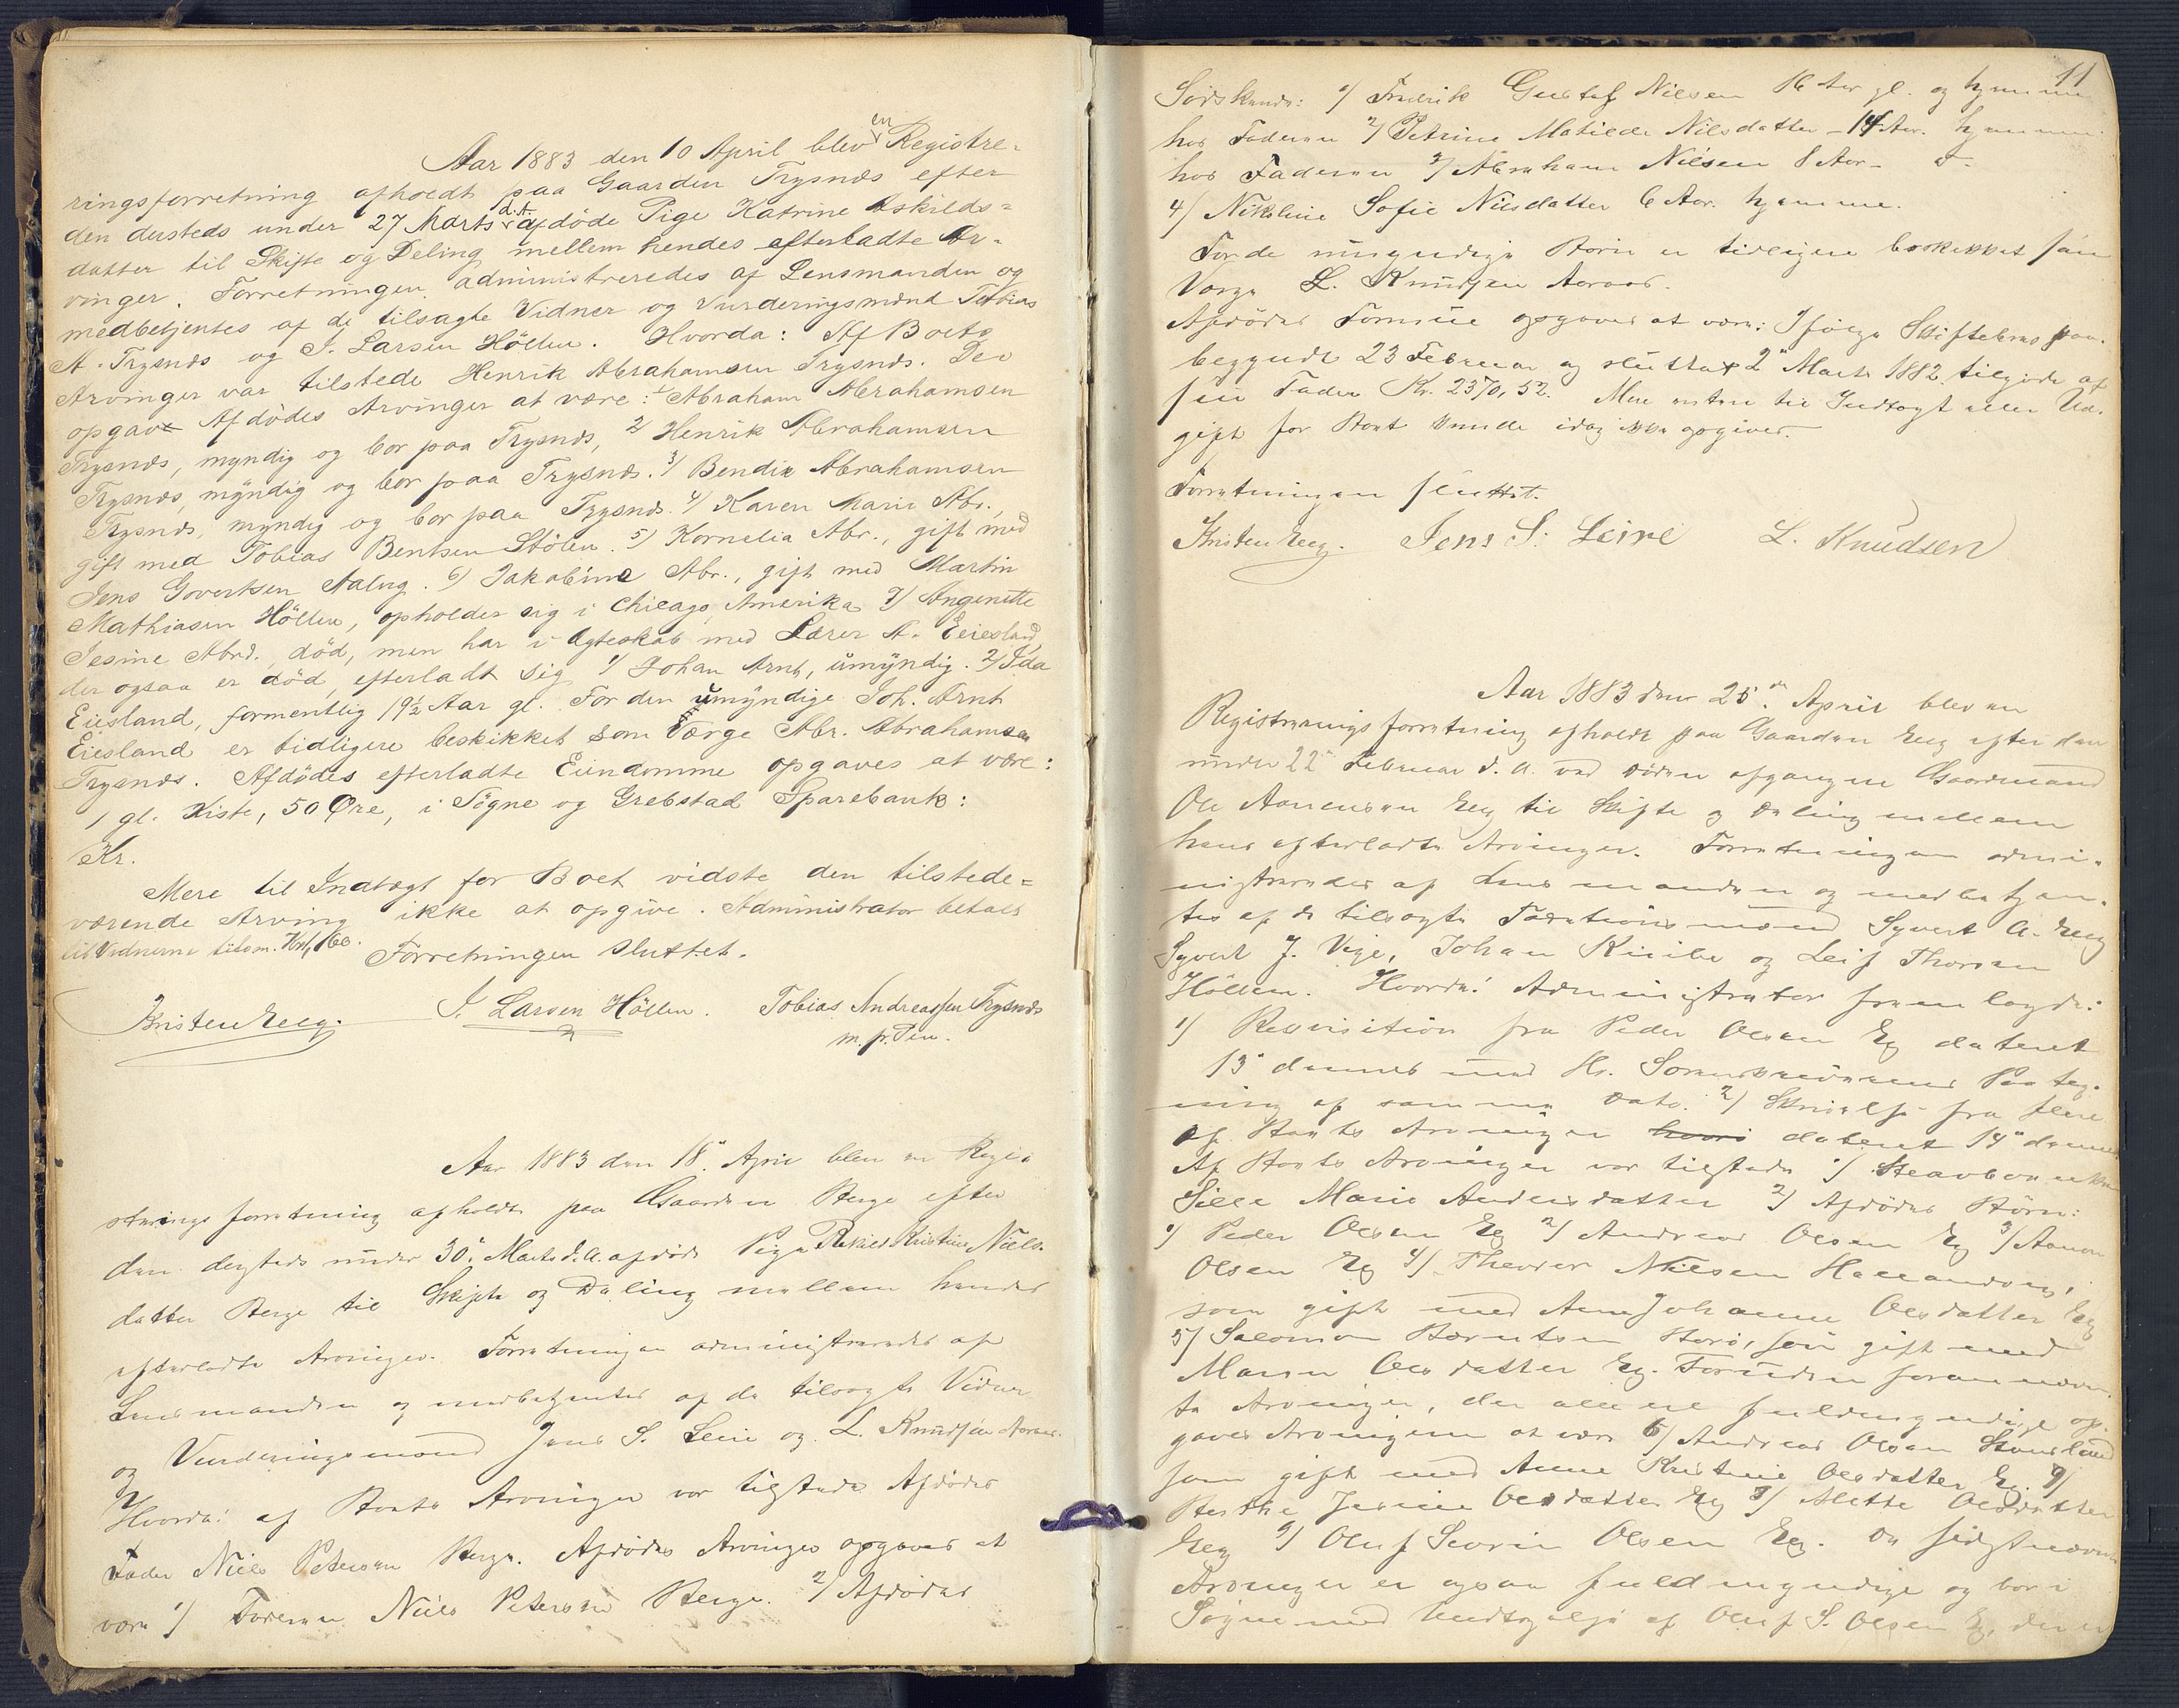 Aar 1883 den 10 April blev en Registre-
ringsforretning afholdt paa Gaarden Trysnæs efter
den dersteds under 27 Marts d.A. afdöde Pige Katrine Eskilds=
datter til Skifte og Deling mellem hendes efterladte Ar-
vinger. Forretningen administreredes af Lensmanden og
medbetjentes af de tilsagte Vidner og Vurderingsmænd Tobias
A. Trysnæs og J. Larsen Höllen. Hvorda: Af Boets
Arvinger var tilstede Henrik Abrahamsen Trysnæs. Der
opgav Afdödes Arvinger at være: 1/ Abraham Abrahamsen
Trysnæs, myndig og bor paa Trysnæs, 2/ Henrik Abrahamsen
Trysnæs, myndig og bor paa Trysnæs. 3/ Bendix Abrahamsen
Trysnæs, myndig og bor paa Trysnæs. 4/ Karen Marie Abr.,
gift med Tobias Bentsen Stölen. 5/ Kornelia Abr., gift med
Jens Govertsen Aalug. 6/ Jakobine Abr., gift med Martin
Mathiasen Höllen, opholder sig i Chicago, Amerika 7/ Angenette
Jesine Abrd., död, men har i Ægteskab med Lærer A. Eiesland,
der ogsaa er död, efterladt sig 1/ Johan Arnt, umyndig. 2/ Ida
Eiesland, formentlig 19½ Aar gl. For den umyndige Joh. Arnt
Eiesland er tidligere beskikket som Værge Abr. Abrahamsen
Trysnæs. Afdödes efterladte Eiendomme opgaves at være:
1 gl. Kiste, 50 Øre, i Sögne og Grebstad Sparebank:
Kr.
Mere til Indtægt for Boet vidste den tilstede=
værende Arving ikke at opgive. Administrator betalt
til Vidnerne tilsm. Kr 1,60. Forretningen sluttet.
Kristen Eeg. J. Larsen Höllen. Tobias Andreassen Trysnæs
m. p. Pen.
Aar 1883 den 18. April blev en Regi-
strerings forretning afholdt paa Gaarden Berge efter
den dersteds under 30. Marts d.A. afdöde Pige Kristine Niels-
datter Berge til Skifte og Deling mellem hendes
efterladte Arvinger. Forretningen administreredes af
Lensmanden og medbetjentes af de tilsagte Vidner
og Vurderingsmænd Jens S. Leire og L. Knudsen Aaraas.
Hvorda: af Boets Arvinger var tilstede Afdödes
Fader Niels Petersen Berge. Afdödes Arvinger opgaves at
være 1/ Faderen Niels Petersen Berge. 2/ Afdödes
11
Södskende: 1/ Fredrik Gustaf Nielsen 16 Aar gl. og hjemme
hos Faderen 2/ Petrine Matilde Nilsdatter - 14 Aar. hjemme
hos Faderen 3/ Abraham Nielsen 8 Aar -
4/ Nikoline Sofie Nilsdatter 6 Aar. hjemme.
For de umyndige Börn er tidligere beskikket som
Værge L. Knudsen Aaraas.
Afdödes Formue opgaves at være: Ifölge Skiftebrev paa-
begyndt 23 Februar og sluttet 2 Marts 1882 tilgode af
sin Fader Kr. 2370,52. Mere enten til Indtægt eller Ud-
gift for Boet kunde idag ikke opgives.
Forretningen sluttet.
Kristen Eeg. Jens S. Leire L. Knudsen
Aar 1883 den 25. April blev en
Registreringsforretning afholdt paa Gaarden Eeg efter den
under 22 Februar d. A. ved Döden afgangne Gaardmand
Ole Aanensen Eeg til Skifte og Deling mellem
hans efterladte Arvinger. Forretningen admi-
nistreredes af Lensmanden og medbetjen-
tes af de tilsagte Taxationsmænd Syvert A. Eeg
Syvert J. Vige, Johan og Leif Thorsen
Höllen. Hvorda: Administrator fremlagde:
1/ Requisition fra Peder Olsen Eg dateret
13 dennes med Hr. Sorenskriverens Paateg-
ning af samme Dato. 2/ Skrivelse fra flere
af Boets Arvinger hvori dateret 14 dennes
Af Boets Arvinger var tilstede 1/
Sille Marie Andersdatter 2/ Afdödes Börn:
1/ Peder Olsen Eg 2/ Andreas Olsen Eg 3/ Aanen
Olsen Eg 4/ Theodor Nilsen
som gift med Anne Johanne Olsdatter Eeg
5/ Salomon Berntsen, som gift med
Maren Olsdatter Eg. Foruden forannævn-
te Arvinger, der alle er fuldmyndige op-
gaves Arvingerne at være 6/ Andreas Olsen
som gift med Anne Kristine Olsdatter Eg. 7/
Jesine Olsdatter Eg 8/ Mette Olsdatter
Eeg 9/ Oluf Severin Olsen Eg. De sidstnævnte
Arvinger er ogsaa fuldmyndige og bor i
Sögne med Undtagelse af Oluf S. Olsen Eg, der er